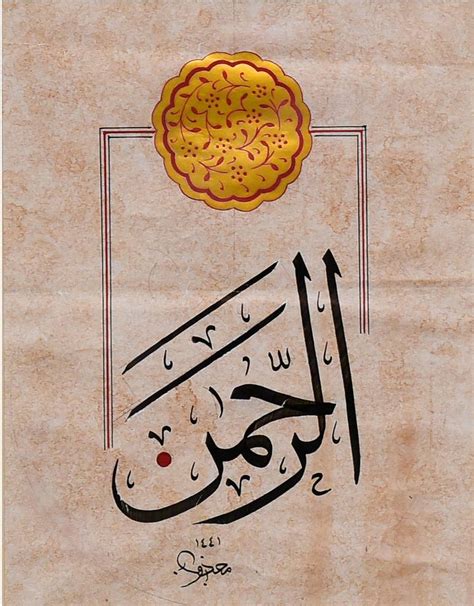 الرَّحمٰن
١٤٤١